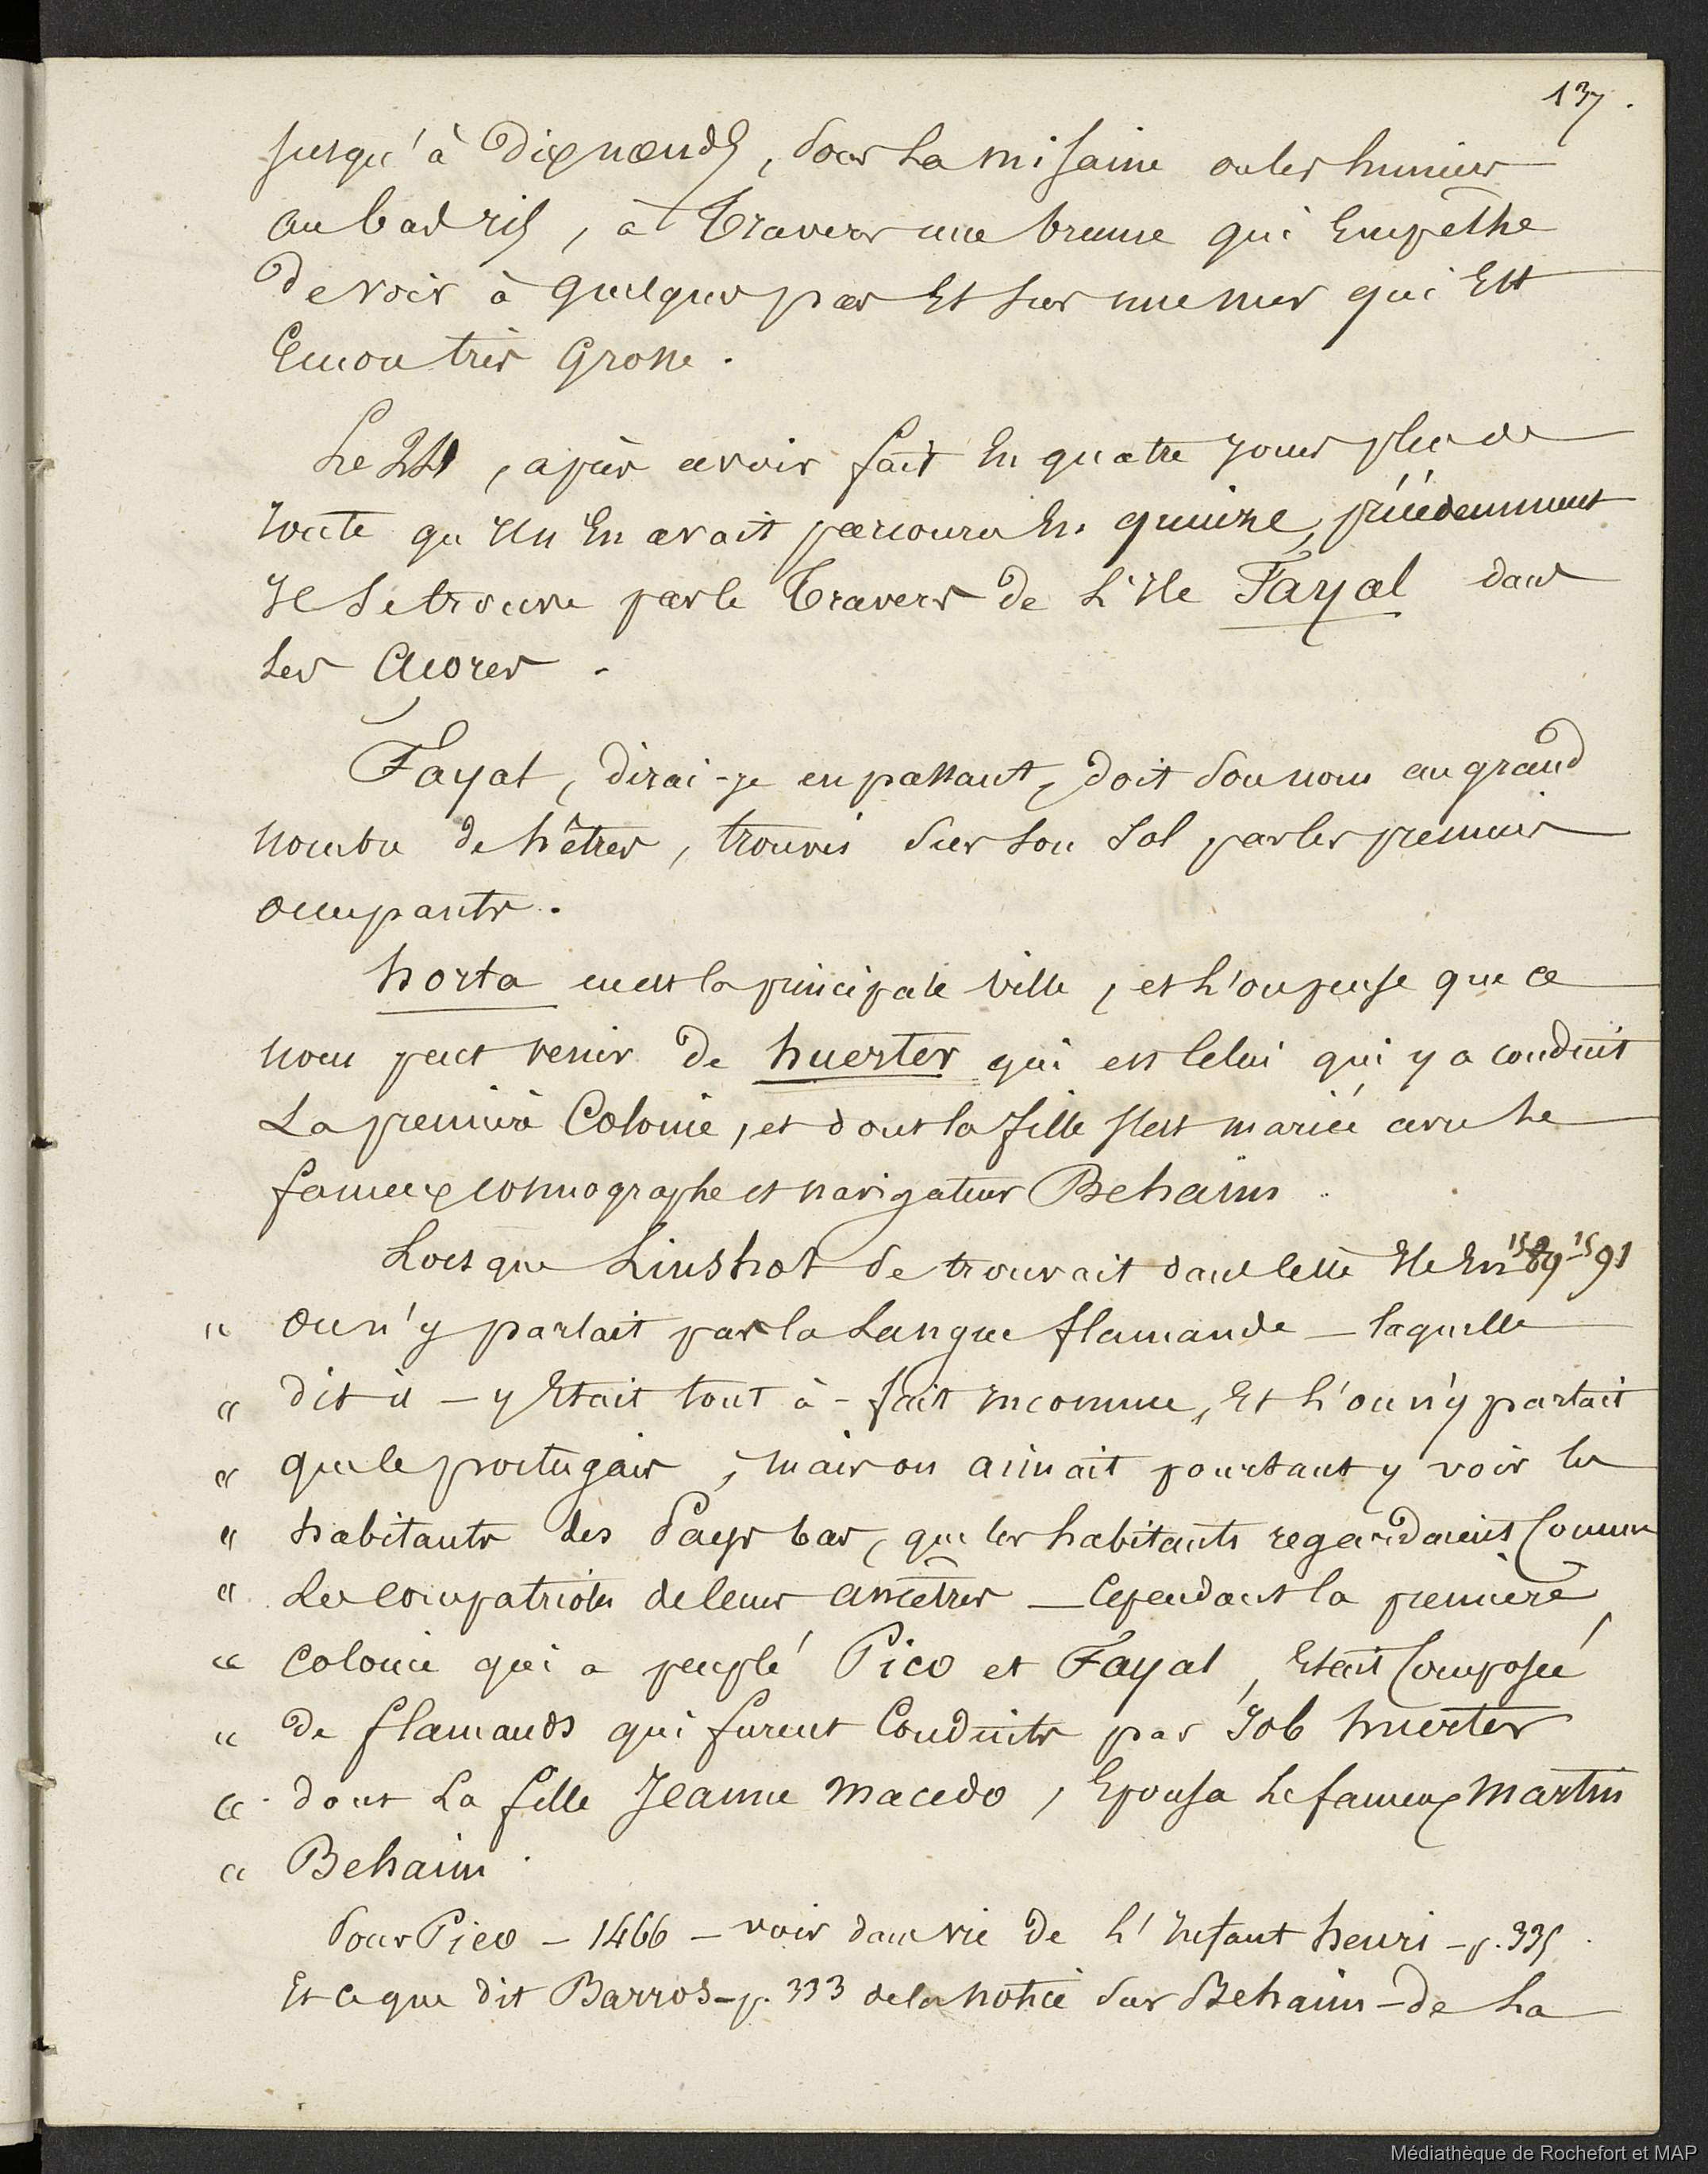 137.
jusqu'à dix nœuds, sous la misaine ou les huniers
au bas ris, à travers une brume qui empêche
de voir à quelques pas et sur une mer qui est
encore très grosse.
Le 24, après avoir fait en quatre jours plus de
route qu'il n'en avait parcouru en quinze, précédemment
il se trouve par le travers de l'île Fayal dans
les Açores.
Fayal, dirai-je en passant, doit son nom au grand
nombre de hêtres, trouvés sur son sol par les premiers
occupants.
horta en est la principale ville, et l'on pense que ce
nom peut venir de huerter qui est celui qui y a conduit
La première Colonie, et dont la fille s'est mariée avec le
fameux cosmographe et navigateur Behaïm.
Lorsque Linshot se trouvait dans cette Ile en 1589-1591
" on n'y parlait pas la Langue flamande – laquelle
" dit-il – y était tout à-fait inconnue, et l'on n'y parlait
" que le portugais, mais on aimait pourtant y voir les
" habitants des Pays bas, que les habitants regardaient comme
" les compatriotes de leurs ancêtres – Cependant la première
" colonie qui a peuplé Pico et Fayal, était composée
" de flamands qui furent conduits par Job huerter
" dont La fille Jeanne Macedo, épousa le fameux Martin
" Behaim.
Pour Pico – 1466 – voir dans vie de l'Infant henri – p. 335.
et ce que dit Barros – p. 333 de la notice sur Behaim – de La
Médiathèque de Rochefort et MAP